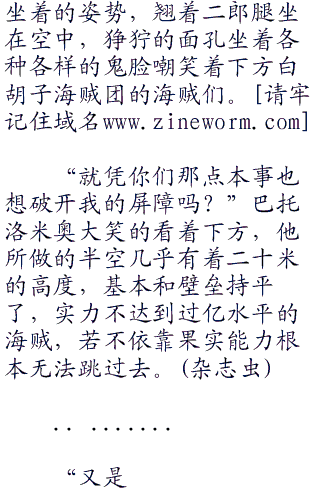 坐着的姿势，翘着二郎腿坐
在空中，狰狞的面孔坐着各
种各样的鬼脸嘲笑着下方白
胡子海贼团的海贼们。[请牢
记住域名www.zineworm.com]
“就凭你们那点本事也
想破开我的屏障吗？”巴托
洛米奥大笑的看着下方，他
所做的半空几乎有着二十米
的高度，基本和壁垒持平
了，实力不达到过亿水平的
海贼，若不依靠果实能力根
本无法跳过去。(杂志虫)
.. .......
“又是